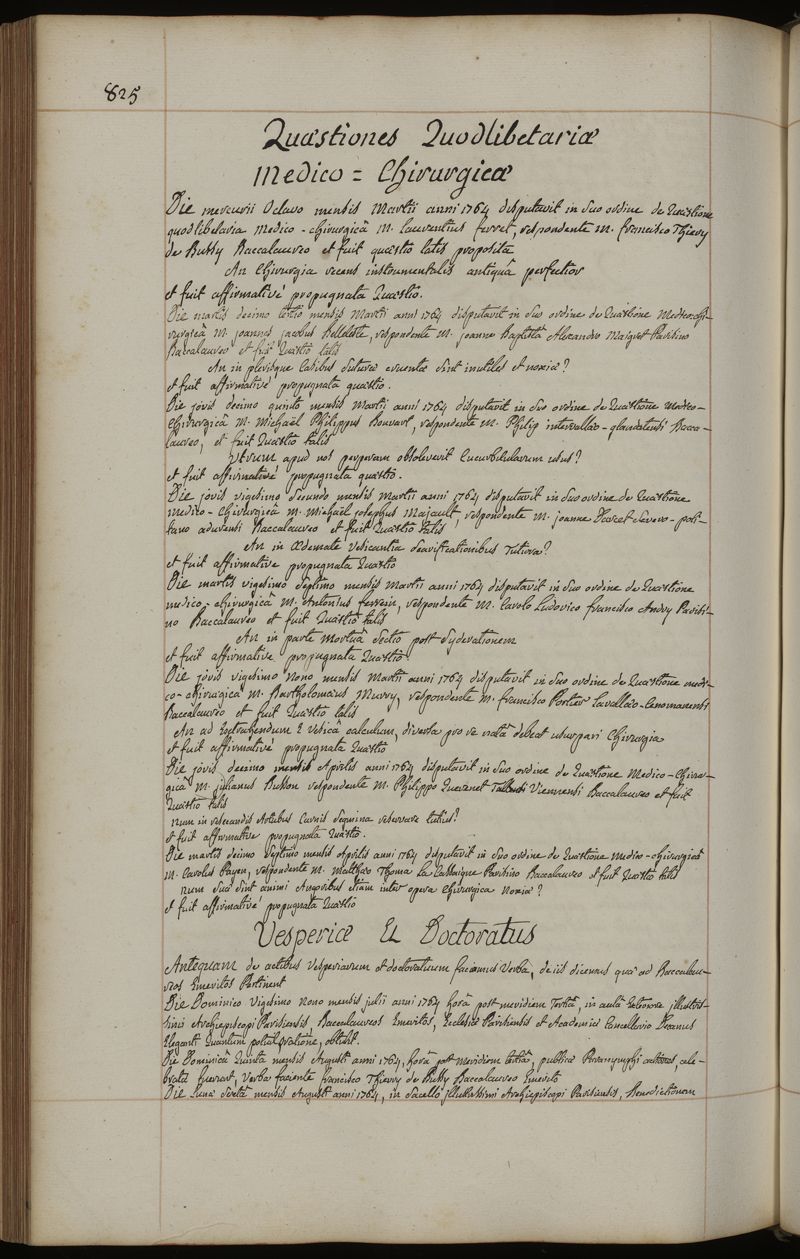 825
Quæstiones Quodlibetariæ
Medico = Chirurgicæ
Die mercurii Octavo mensis Martii anni 1764 disputavit in suo ordine de Quæstione
quodlibetaria Medico - chirurgicâ M. laurentius ferret, respondente M. francisco Thiery
de Bussy Baccalaureo et fuit quæstio talis proposita
An Chirurgia recens instrumentalis antiquâ perfectior
et fuit affirmativé propugnata Quæstio.
Die martis decimo tertio mensis Martii anni 1764 disputavit in suo ordine de Quæstione Medico-chi-
rurgicâ M. joannes jacobus Belleteste, respondente M. joanne Baptistâ Alexandro Maigret Parisino
Baccalaureo et fuit Quæstio talis
An in plerisque Casibus suturæ cruentæ sint inutiles et noxiæ?
et fuit affirmativé propugnata quæstio.
Die jovis decimo quinto mensis Martii anni 1764 disputavit in suo ordine de Quæstione Medico-
chirurgicâ M. Michaël Philippus Bouvart, respondente M. Philip intervallæo - glandatensi Bacca-
laureo, et fuit Quæstio talis
Utrum apud nos perperam obsoleverit Cucurbitularum usus?
et fuit affirmativé propugnata quæstio.
Die jovis vigesimo secundo mensis Martii anni 1764 disputavit in suo ordine de Quæstione
medico - chirurgicâ M. Michaël josephus Majault, respondente M. joanne Darcet Severo-poli-
tano adurensi Baccalaureo et fuit Quæstio talis
An in Œdemate Vesicantia Scarificationibus Tutiora?
et fuit affirmative propugnata Quæstio
Die martis vigesimo septimo mensis Martii anni 1764 disputavit in suo ordine de Quæstione
medico - chirurgicâ M. Antonius ferrein, respondente M. Carolo Ludovico francisco Andry Parisi-
no Baccalaureo et fuit Quæstio talis
An in parte Mortuâ Sectio post Syderationem
et fuit affirmative propugnata Quæstio
Die jovis vigesimo nono mensis Martii anni 1764 disputavit in suo ordine de Quæstione medi-
co-chirurgica M. Bartholomæus Murry, respondente M. francisco Portier Lavallæo-Cenomanensi
Baccalaureo et fuit Quæstio talis
An ad Extrahendum è Vesicâ calculum, diversa pro re natâ debeat usurpari Chirurgia
et fuit affirmativé propugnata Quæstio
Die jovis decimo mensis Aprilis anni 1764 disputavit in suo ordine de Quæstione Medico-Chirur-
gicâ M. julianus Busson respondente M. Philippo Quevenet Viennensi Baccalaureo et fuit
Quæstio talis
num in resecandis Artubus Carnis segmina reservare satius?
et fuit affirmative propugnata Quæstio.
Die martis decimo septimo mensis Aprilis anni 1764 disputavit in suo ordine de Quæstione Medico-chirurgicâ
M. Carolus Payen, respondente M. Matthæo Thoma La Cassaigne Parisino Baccalaureo et fuit Quæstio talis
num sua sint animi Angoribus etiam inter opera Chirurgica noxia?
et fuit affirmativé propugnata Quæstio
Vesperiæ Et Doctoratus
Antequam de actibus Vesperiarum et doctoratuum faciamus Verba, de iis dicemus quæ ad Baccalau-
reos Emeritos Pertinent
Die Dominico Vigesimo Nono mensis julii anni 1764 horâ post meridiem Tertiâ, in aulâ illustris-
simi Archiepiscopi Parisiensis, Baccalaureos Emeritos, Ecclesiæ Parisiensis et Academiæ Cancellario Decanus
Eleganti Quantum politâ oratione, obtulit.
Die Dominicâ Quinta mensis Augusti anni 1764, horâ post Meridiem tertiâ, publicè Paranymphi cele-
brati fuerunt, Verba faciente francisco Thierry de Bussy Baccalaureo Emerito
Die Lunæ Sextâ mensis Augusti anni 1764, in sacello jllustrissimi Archiepiscopi Parisiensis, Benedictionem